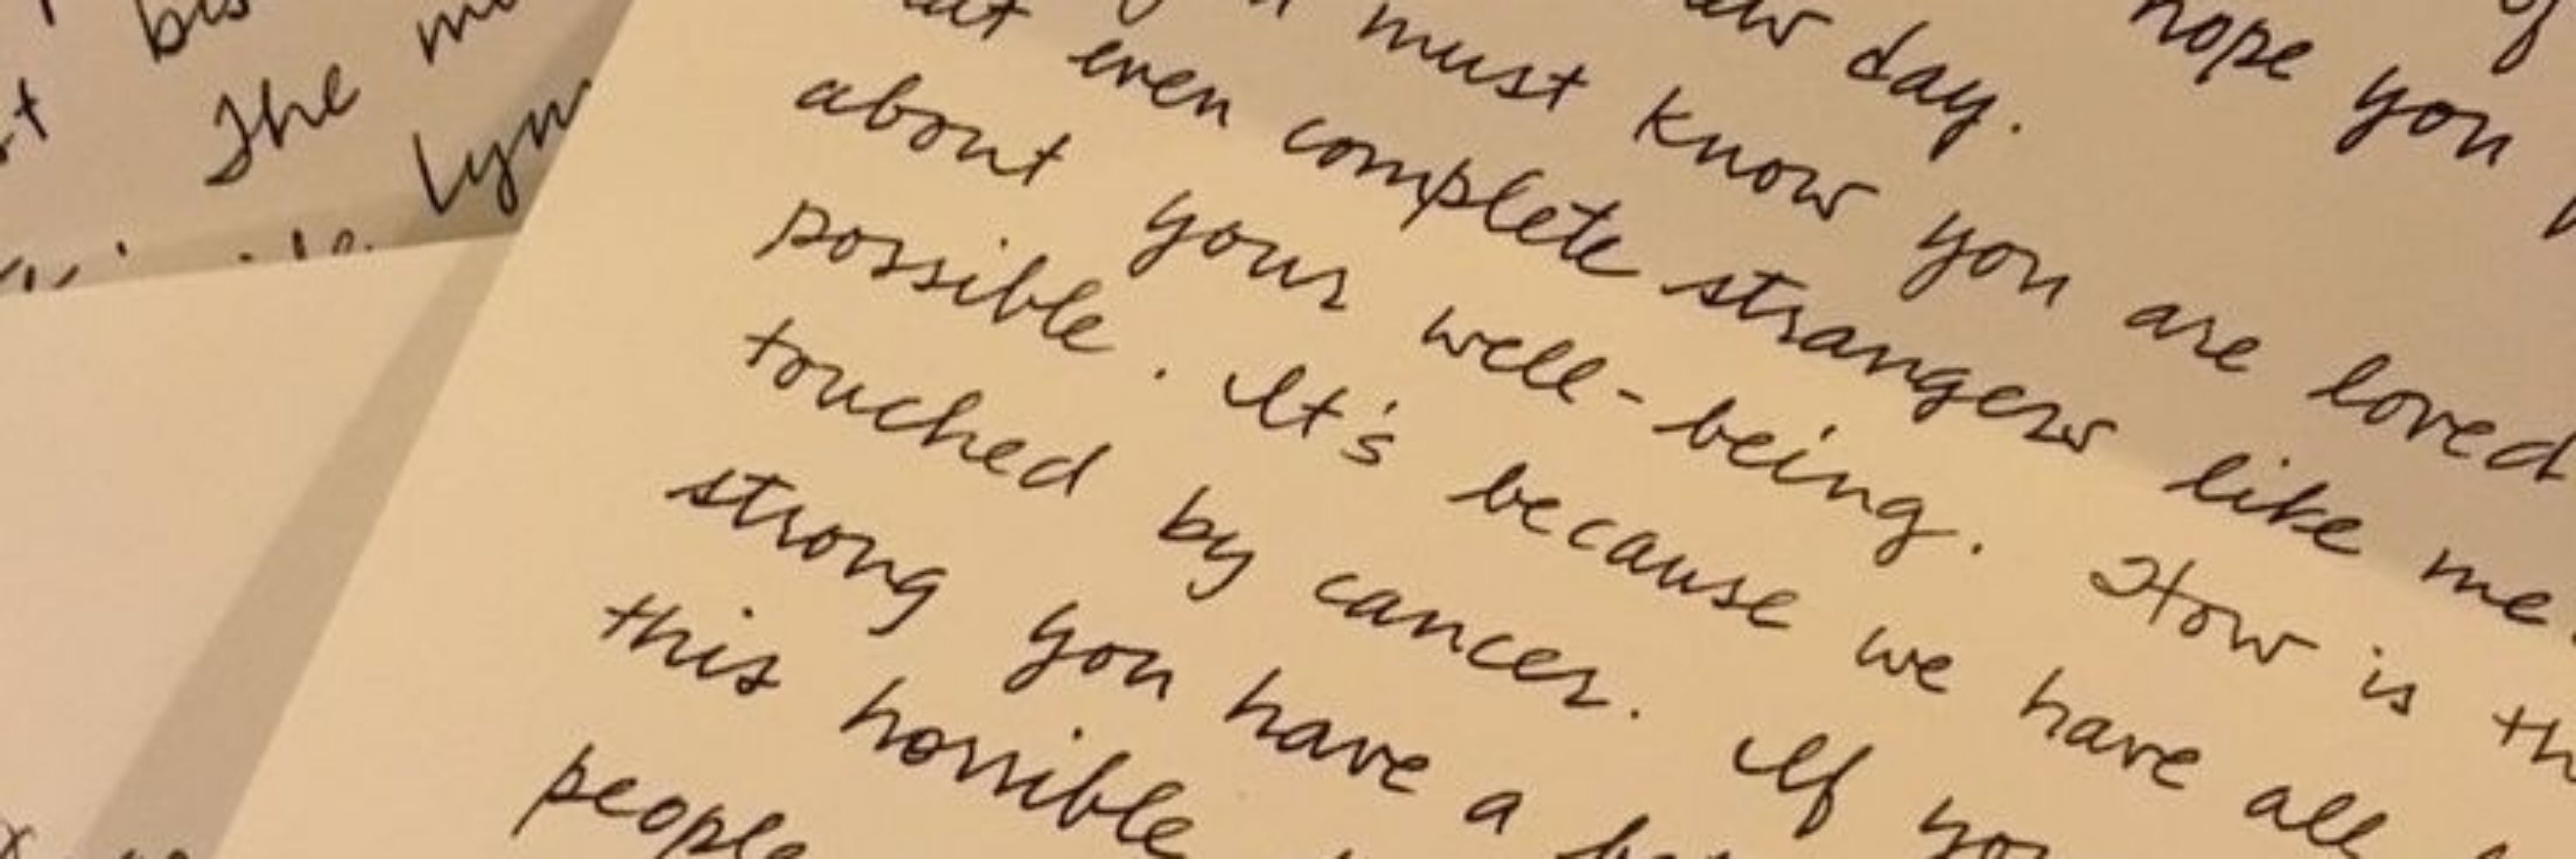 The
hope you
day.
must know you are loved
even complete strangers like me
about your well-being. How is
possible. It's because we have all
touched by cancer. If
strong you have a
this horrible
people